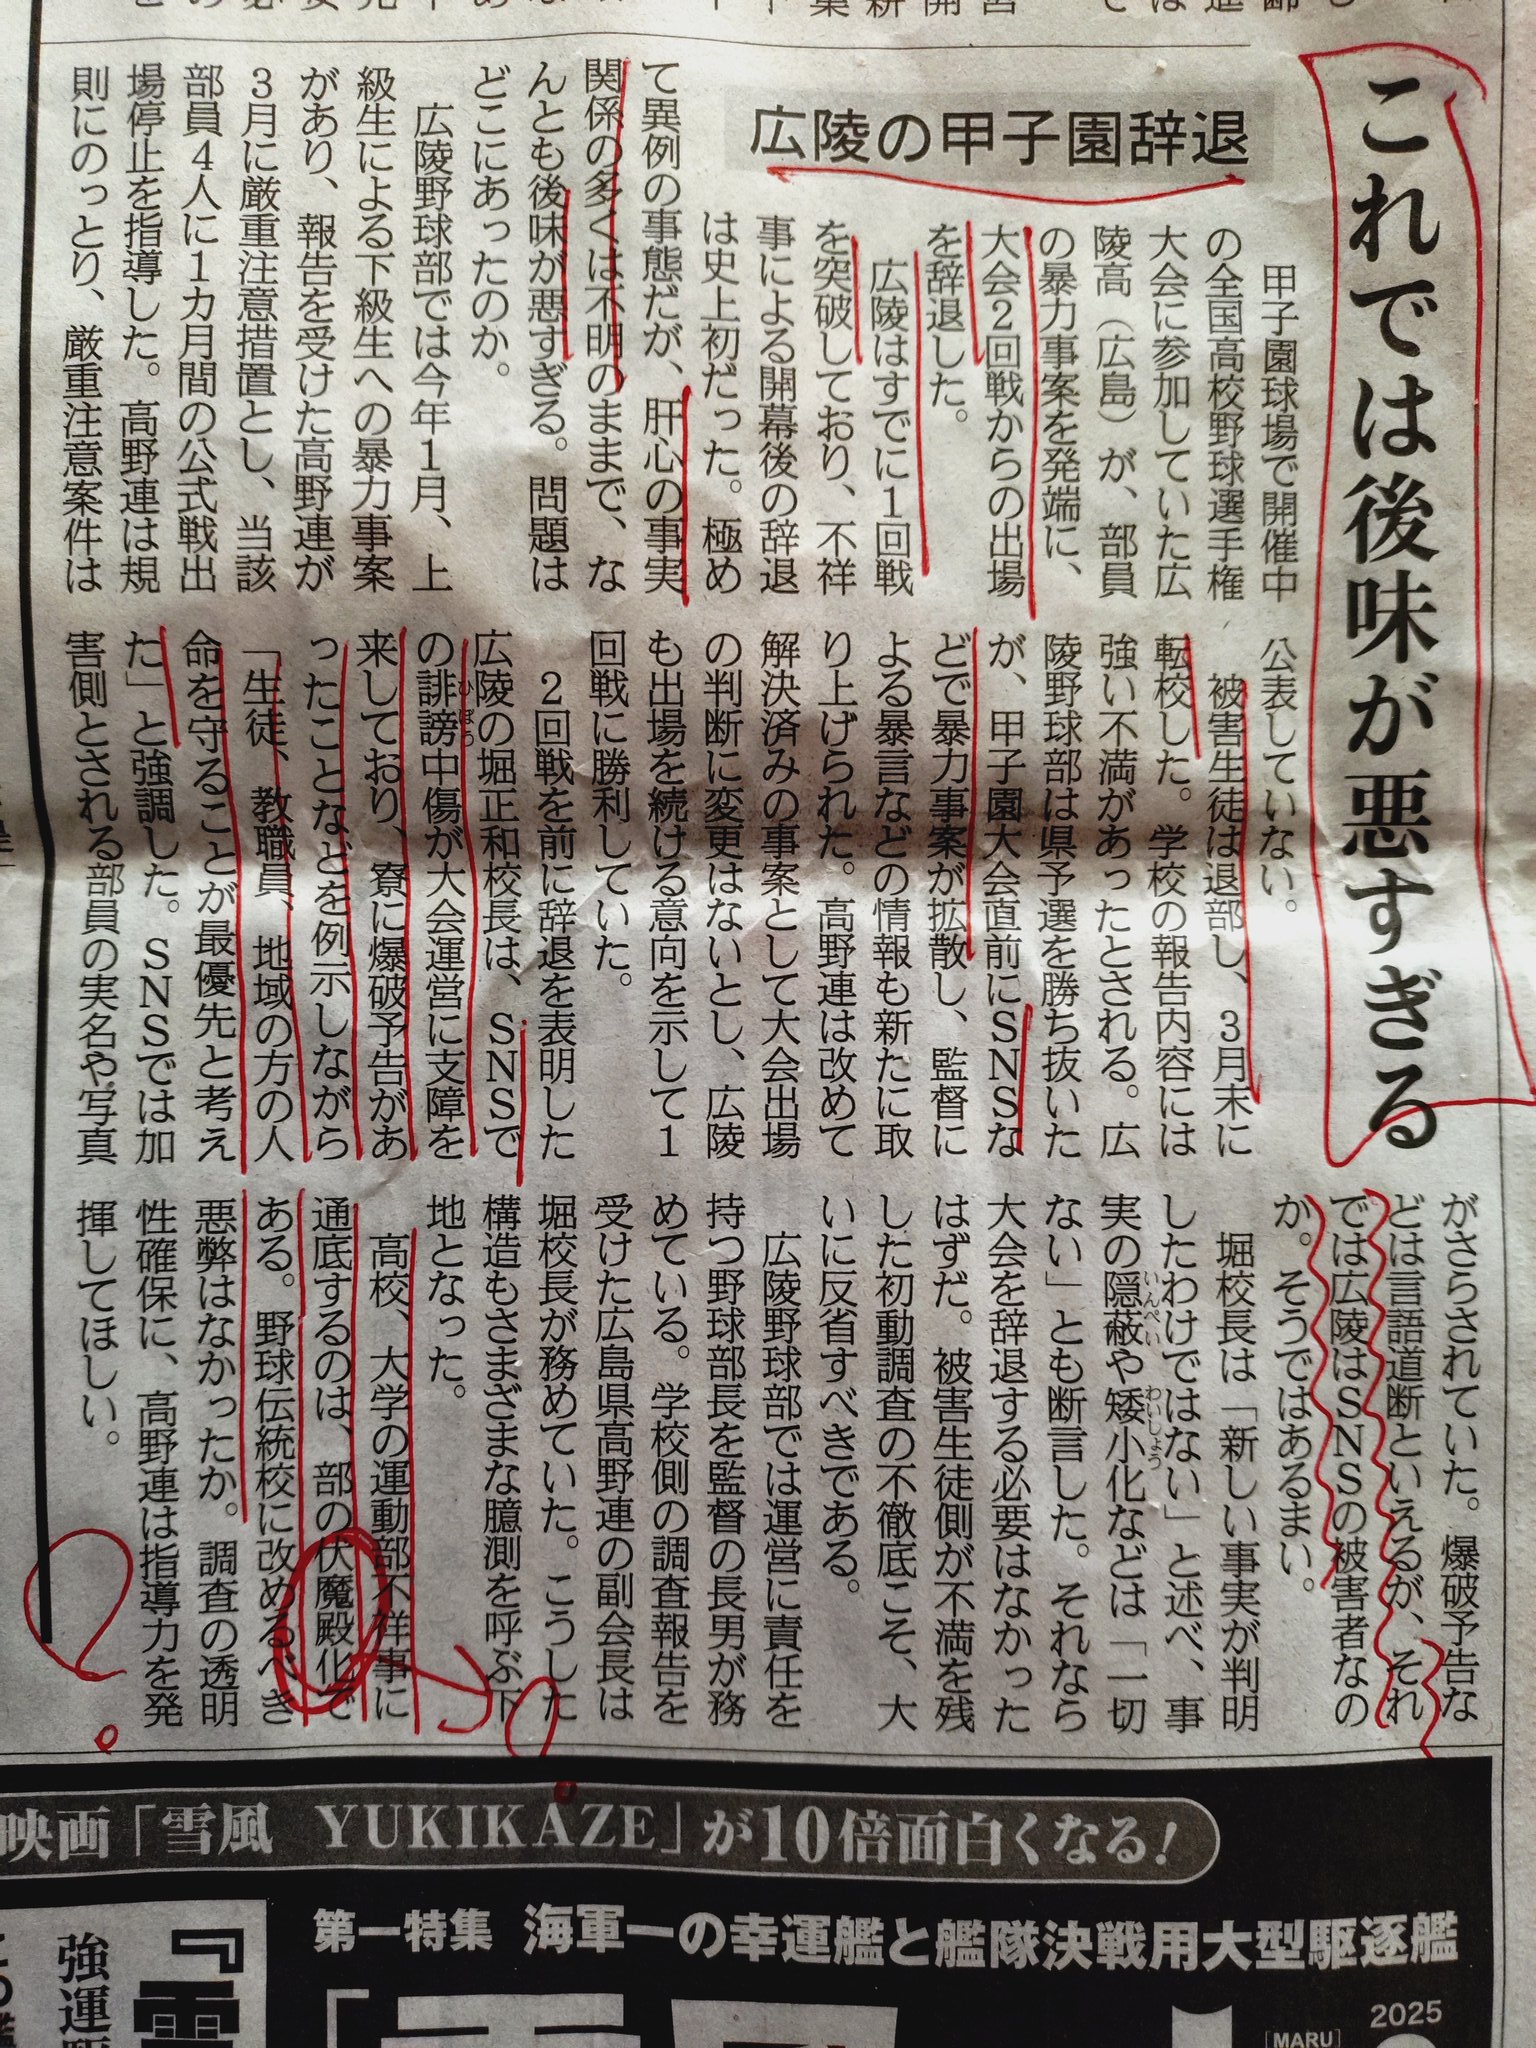 これでは後味が悪すぎる
広陵の甲子園辞退
甲子園球場で開催中
の全国高校野球選手権
大会に参加していた広
陵高（広島）が、部員
の暴力事案を発端に、
大会2回戦からの出場
を辞退した。
広陵はすでに1回戦
を突破しており、不祥
事による開幕後の辞退
は史上初だった。極め
て異例の事態だが、肝心の事実
関係の多くは不明のままで、な
んとも後味が悪すぎる。問題は
どこにあったのか。
広陵野球部では今年1月、上
級生による下級生への暴力事案
があり、報告を受けた高野連が
3月に厳重注意措置とし、当該
部員4人に1カ月間の公式戦出
場停止を指導した。高野連は規
則にのっとり、厳重注意案件は
公表していない。
被害生徒は退部し、3月末に
転校した。学校の報告内容には
強い不満があったとされる。広
陵野球部は県予選を勝ち抜いた
が、甲子園大会直前にSNSな
どで暴力事案が拡散し、監督に
よる暴言などの情報も新たに取
り上げられた。高野連は改めて
解決済みの事案として大会出場
の判断に変更はないとし、広陵
も出場を続ける意向を示して1
回戦に勝利していた。
2回戦を前に辞退を表明した
広陵の堀正和校長は、SNSで
の誹謗中傷が大会運営に支障を
来しており、寮に爆破予告があ
ったことなどを例示しながら
「生徒、教職員、地域の方の人
命を守ることが最優先と考え
た」と強調した。SNSでは加
害側とされる部員の実名や写真
がさらされていた。爆破予告な
どは言語道断といえるが、それ
では広陵はSNSの被害者なの
か。そうではあるまい。
堀校長は「新しい事実が判明
したわけではない」と述べ、事
実の隠蔽や矮小化などは「一切
ない」とも断言した。それなら
大会を辞退する必要はなかった
はずだ。被害生徒側が不満を残
した初動調査の不徹底こそ、大
いに反省すべきである。
広陵野球部では運営に責任を
持つ野球部長を監督の長男が務
めている。学校側の調査報告を
受けた広島県高野連の副会長は
堀校長が務めていた。こうした
構造もさまざまな臆測を呼ぶ下
地となった。
高校、大学の運動部不祥事に
通底するのは、部の伏魔殿化で
ある。野球伝統校に改めるべき
悪弊はなかったか。調査の透明
性確保に、高野連は指導力を発
揮してほしい。
映画「雪風 YUKIKAZE」が10倍面白くなる！
第一特集 海軍一の幸運艦と艦隊決戦用大型駆逐艦
2025
［MARU］
強運
『雪